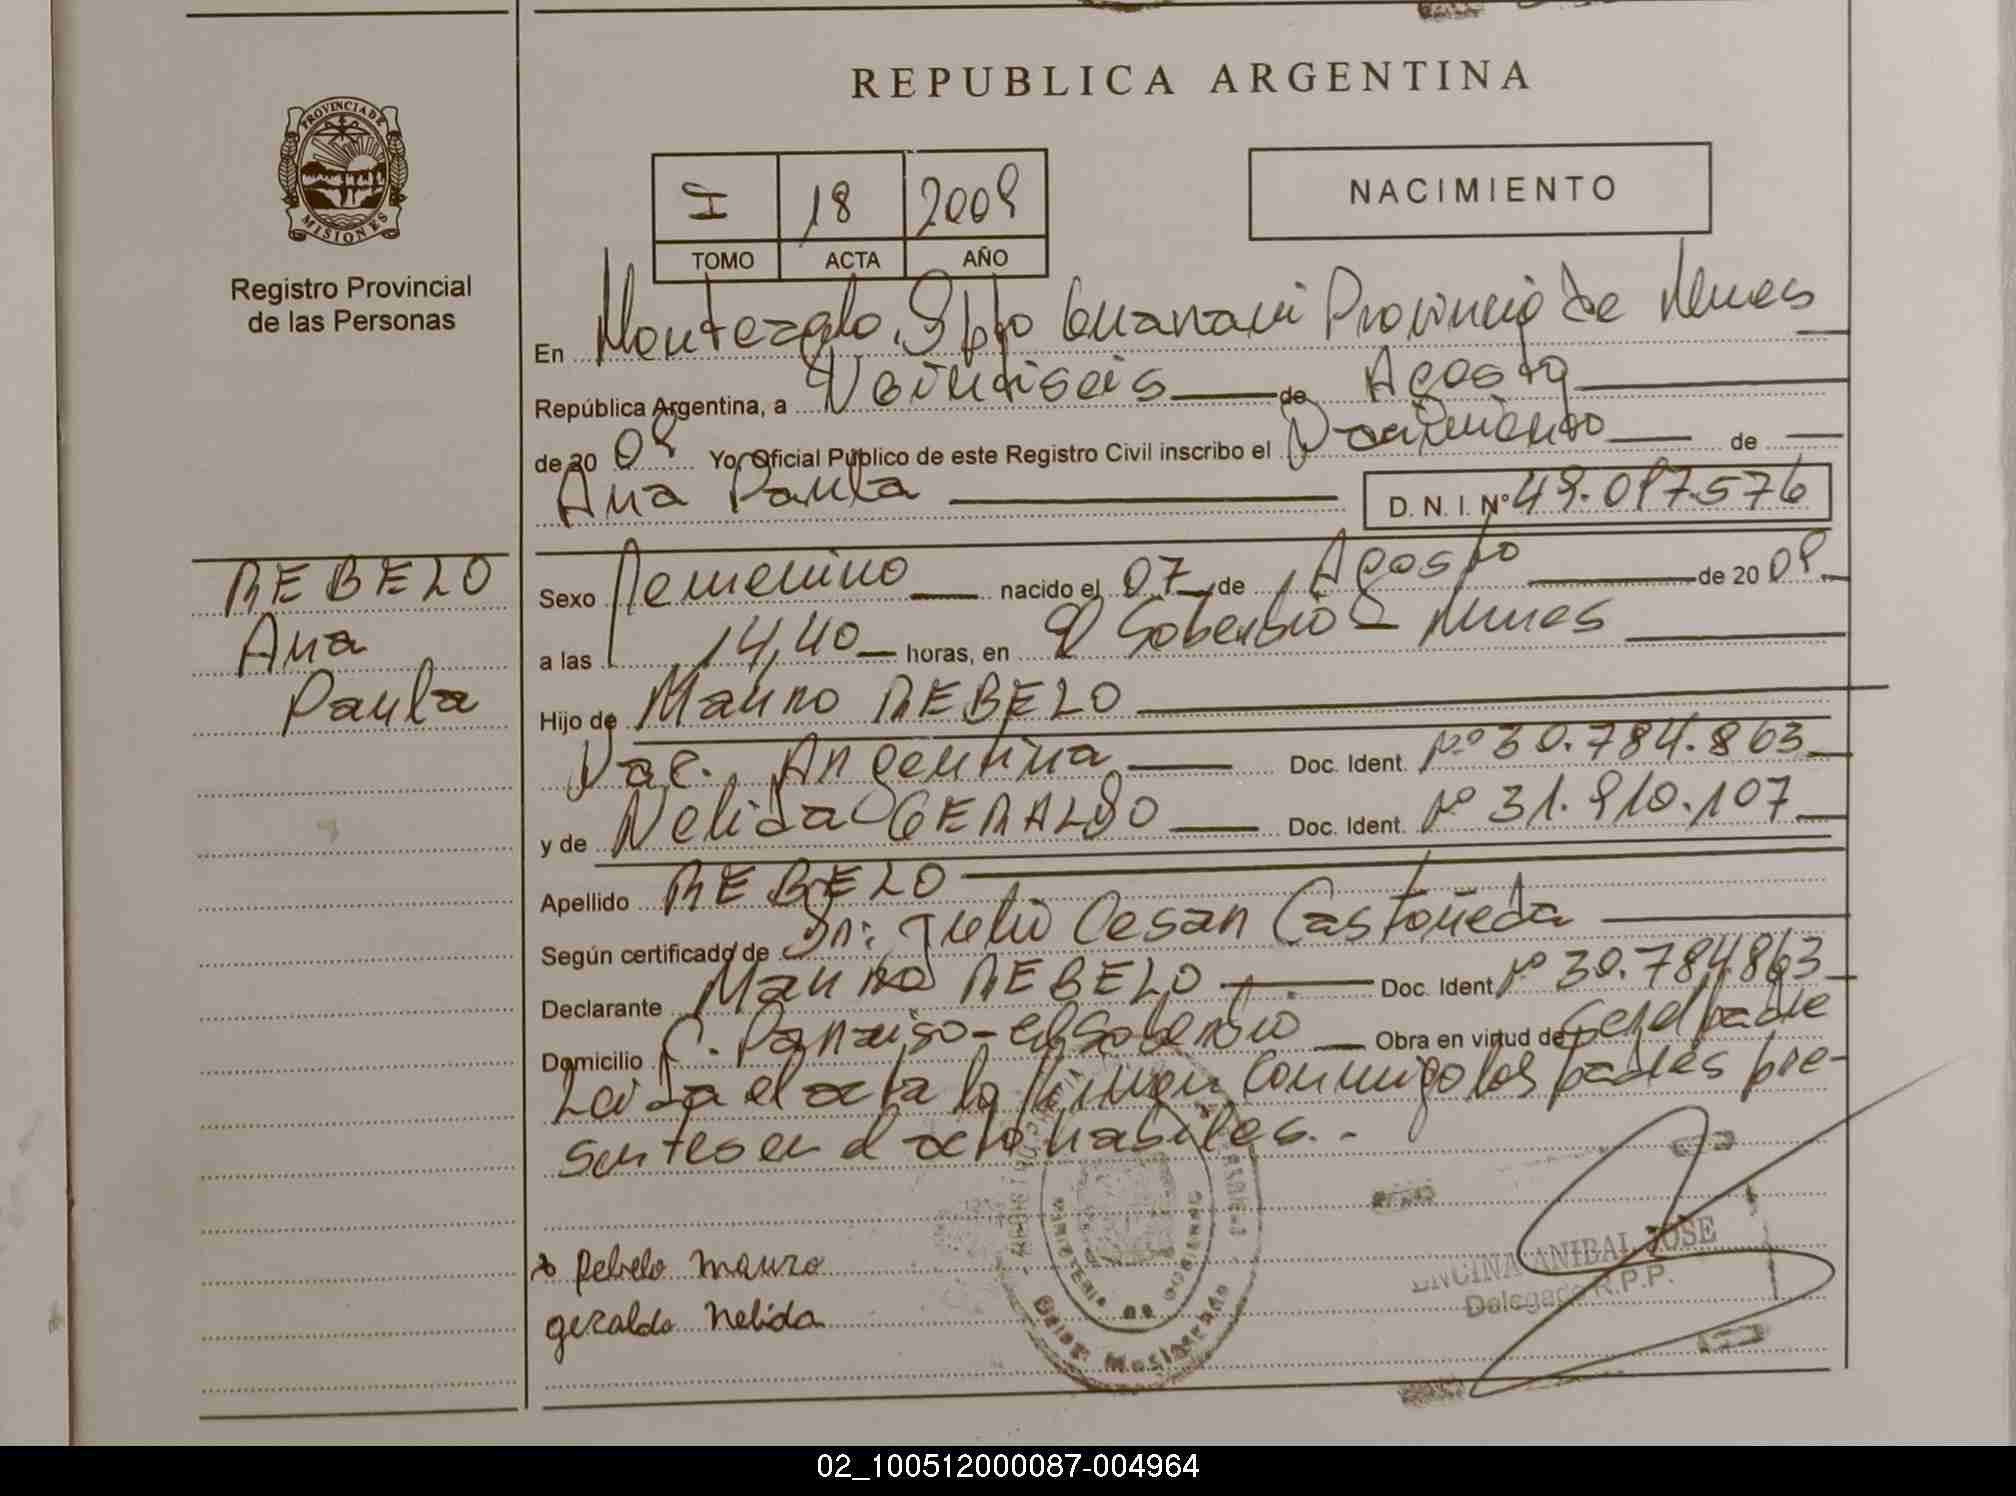 REPUBLICA ARGENTINA
PROVINCIA DE
MISIONES
Registro Provincial
de las Personas
I 18 2009
TOMO ACTA AÑO
NACIMIENTO
En Monteagdo, Dpto Guarani Provincia de Mnes
República Argentina, a Veintiseis de Agosto
de 20 09 Yo, Oficial Público de este Registro Civil inscribo el Nacimiento de
Ana Paula D. N. I. Nº 49.097.576
REBELO
Ana
Paula
Sexo Femenino nacido el 07 de Agosto de 20 09
a las 14,40 horas, en El Soberbio - Mnes
Hijo de Mauro REBELO
Nac. Argentina Doc. Ident. Nº 30.784.863
y de Nelida GERALDO Doc. Ident. Nº 31.910.107
Apellido REBELO
Según certificado de Dr: Julio Cesar Castañeda
Declarante Mauro REBELO Doc. Ident. Nº 30.784.863
Domicilio C. Paraiso - El Soberbio Obra en virtud de ser el padre
Leida el acta la firman conmigo los padres pre-
sentes en el acto habiles. -
Rebelo mauro
geraldo nelida
MINISTERIO DE GOBIERNO
ENCINA ANIBAL JOSE
Delegado R.P.P.
02_100512000087-004964